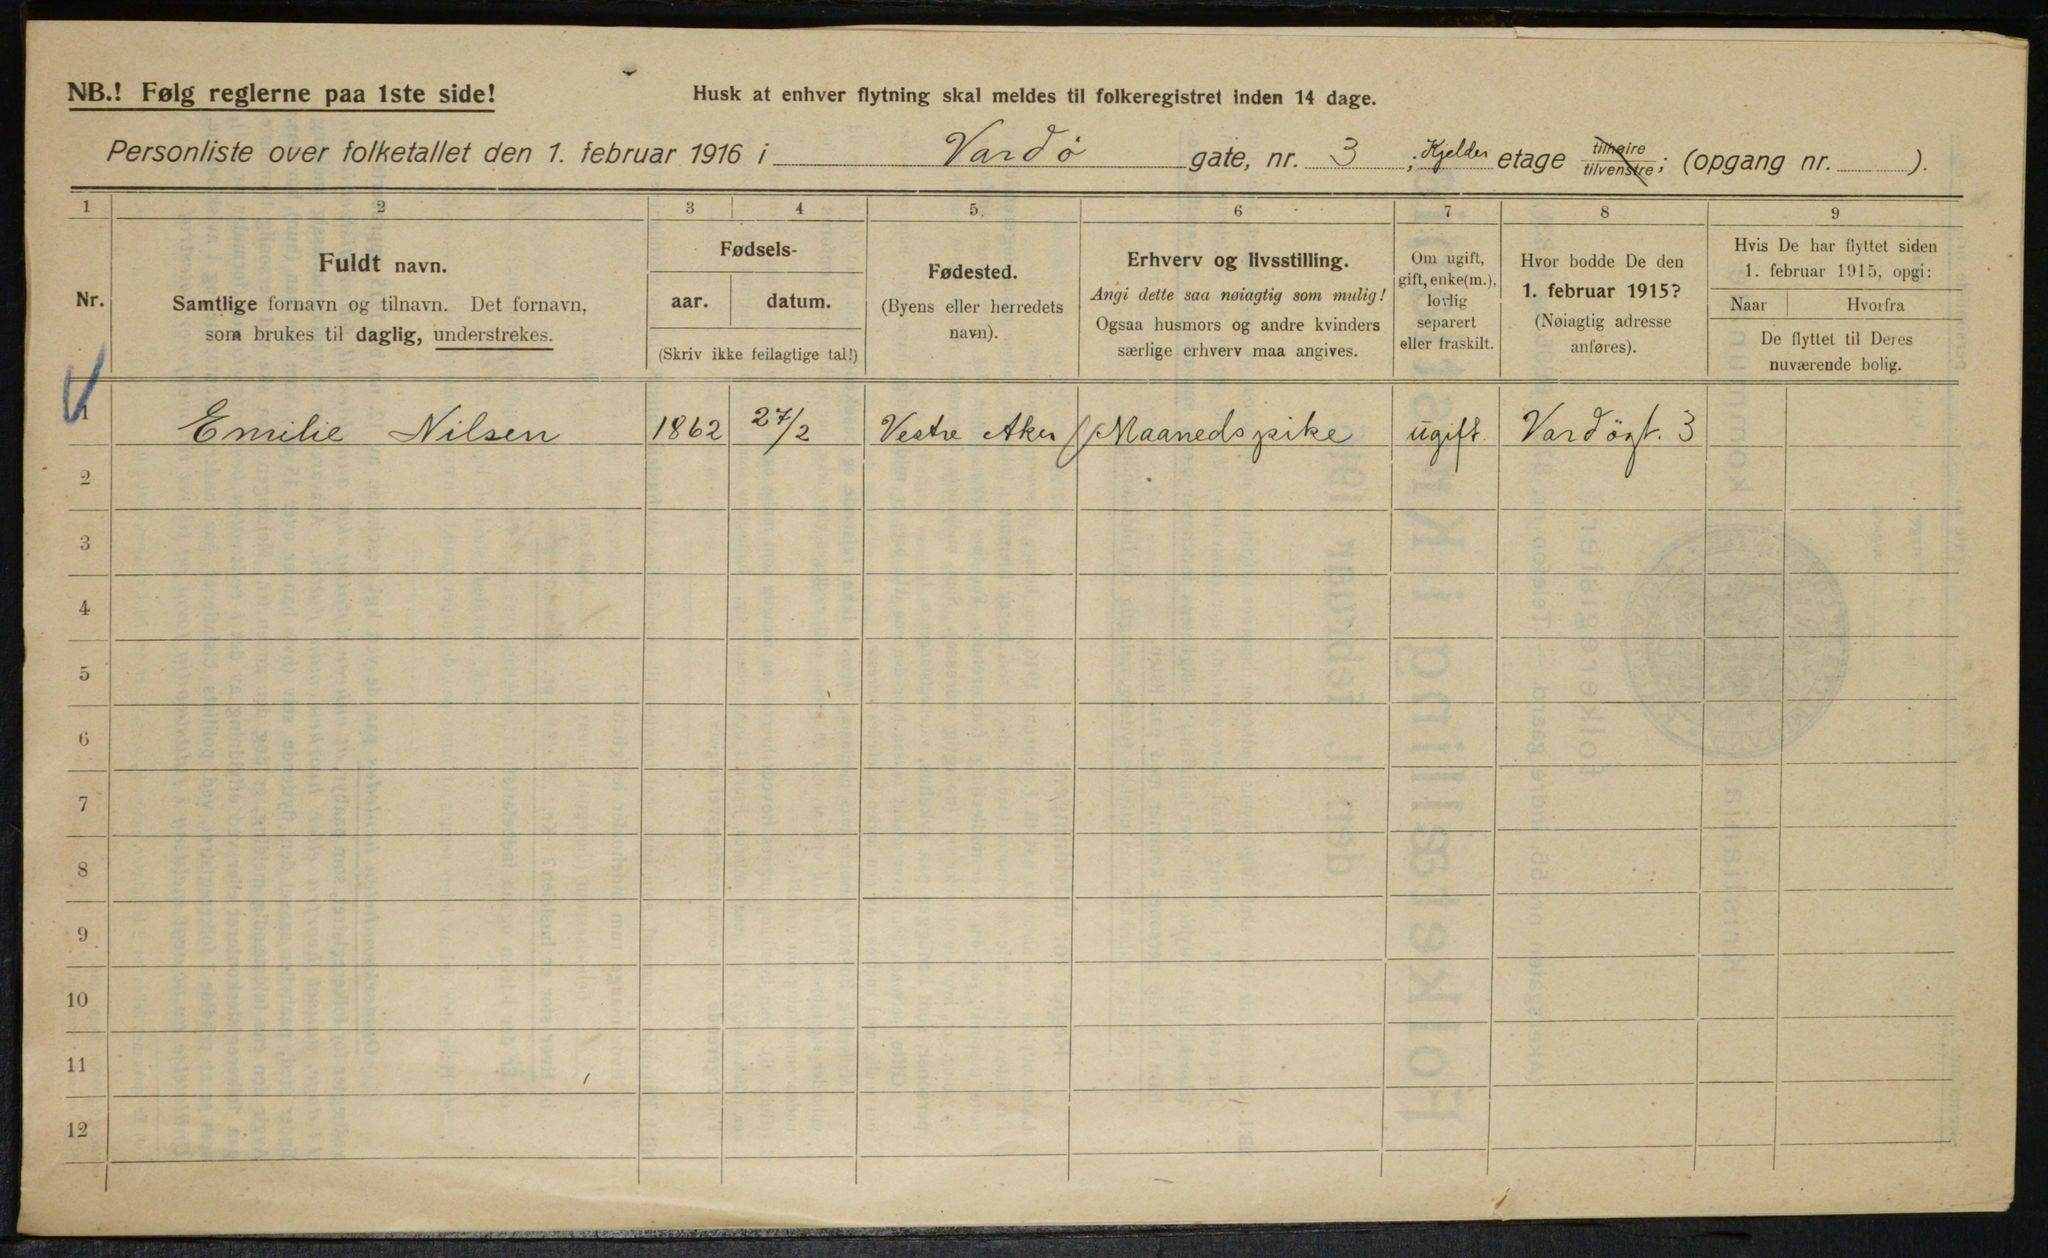 NB.! Følg reglerne paa 1ste side!
Husk at enhver flytning skal meldes til folkeregistret inden 14 dage.
Personliste over folketallet den 1. februar 1916 i Vardø gate, nr. 3 ; Kjelder etage tilhøire tilvenstre; (opgang nr. ).
1 2 3 4 5. 6 7 8 9
Nr.
Fuldt navn.
Samtlige fornavn og tilnavn. Det fornavn,
som brukes til daglig, understrekes.
Fødsels-
aar. datum.
(Skriv ikke feilagtige tal!)
Fødested.
(Byens eller herredets
navn).
Erhverv og livsstilling.
Angi dette saa nøiagtig som mulig!
Ogsaa husmors og andre kvinders
særlige erhverv maa angives.
Om ugift,
gift, enke(m.),
lovlig
separert
eller fraskilt.
Hvor bodde De den
1. februar 1915?
(Nøiagtig adresse
anføres).
Hvis De har flyttet siden
1. februar 1915, opgi:
Naar Hvorfra
De flyttet til Deres
nuværende bolig.
1 Emilie Nilsen 1862 27/2 Vestre Aker Maanedspike ugift Vardøgt. 3
2
3
4
5
6
7
8
9
10
11
12